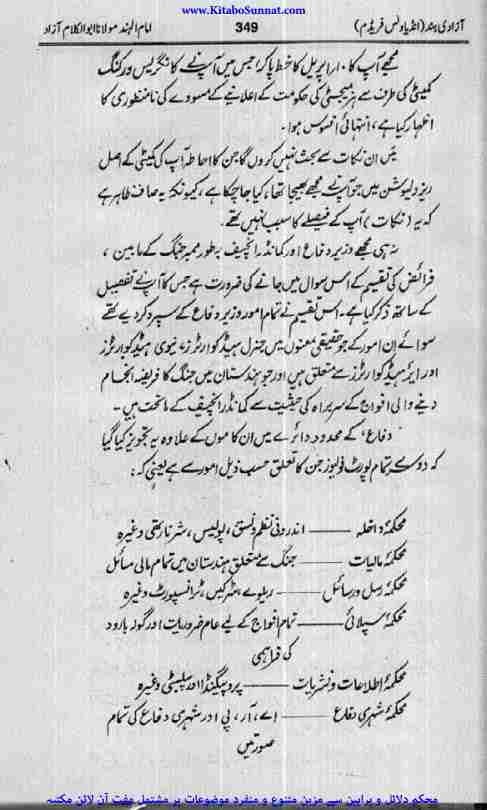 www.KitaboSunnat.com
آزادی ہند (انڈیا ونس فریڈم)
349
امام الہند مولانا ابوالکلام آزاد
مجھے آپ کا ۱۰ اپریل کا خط پا کر، جس میں آپ نے کانگریس ورکنگ
کمیٹی کی طرف سے ہز میجسٹی کی حکومت کے اعلانیے کے مسودے کی نامنظوری کا
اظہار کیا ہے، انتہائی افسوس ہوا۔
میں ان نکات سے بحث نہیں کروں گا جن کا احاطہ آپ کی کمیٹی کے اصل
ریزولیوشن میں جو آپ نے مجھے بھیجا تھا، کیا جا چکا ہے، کیونکہ یہ صاف ظاہر ہے
کہ یہ (نکات) آپ کے فیصلے کا سبب نہیں تھے۔
نہ ہی مجھے وزیر دفاع اور کمانڈر انچیف بطور ممبر جنگ کے مابین،
فرائض کی تقسیم کے اس سوال میں جانے کی ضرورت ہے جس کا آپ نے تفصیل
کے ساتھ ذکر کیا ہے۔ اس تقسیم نے تمام امور وزیر دفاع کے سپرد کر دیے تھے
سوائے ان امور کے جو حقیقی معنوں میں جنرل ہیڈ کوارٹرز، نیوی ہیڈ کوارٹرز
اور ایئر ہیڈ کوارٹرز سے متعلق ہیں اور جو ہندستان میں جنگ کا فریضہ انجام
دینے والی افواج کے سربراہ کی حیثیت سے کمانڈر انچیف کے ماتحت ہیں۔
'دفاع' کے محدود دائرے میں ان کاموں کے علاوہ یہ تجویز کیا گیا
کہ دوسرے تمام پورٹ فولیوز جن کا تعلق حسب ذیل امور سے ہے یعنی کہ:
محکمۂ داخلہ —— اندرونی نظم و نسق، پولیس، شرنارتھی وغیرہ
محکمۂ مالیات —— جنگ سے متعلق ہندستان میں تمام مالی مسائل
محکمۂ رسل و رسائل —— ریلوے، سڑکیں، ٹرانسپورٹ وغیرہ
محکمۂ سپلائی —— تمام افواج کے لیے عام ضروریات اور گولہ بارود
کی فراہمی
محکمۂ اطلاعات و نشریات —— پروپیگنڈا اور پبلسٹی وغیرہ
محکمۂ شہری دفاع —— اے، آر، پی اور شہری دفاع کی تمام
صورتیں
محکم دلائل و براہین سے مزین متنوع و منفرد موضوعات پر مشتمل مفت آن لائن مکتبہ